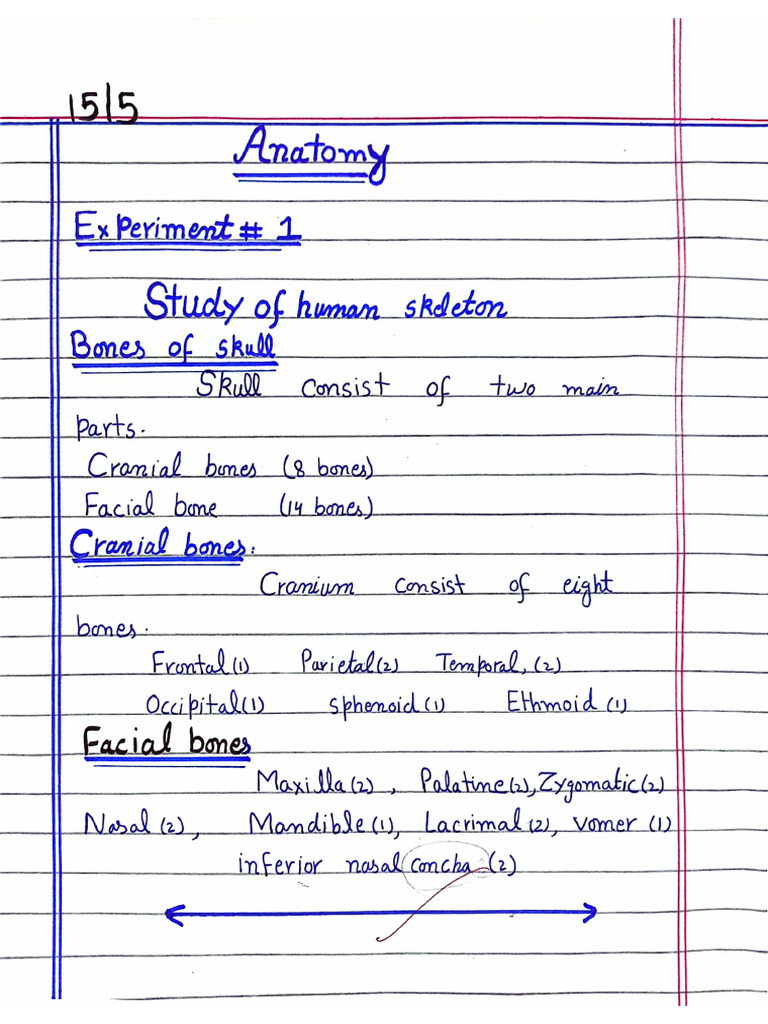 15/5
Anatomy
Experiment # 1
Study of human skeleton
Bones of skull
Skull consist of two main
parts.
Cranial bones (8 bones)
Facial bone (14 bones)
Cranial bones:
Cranium consist of eight
bones.
Frontal (1) Parietal (2) Temporal, (2)
Occipital (1) sphenoid (1) Ethmoid (1)
Facial bones
Maxilla (2), Palatine (2), Zygomatic (2)
Nasal (2), Mandible (1), Lacrimal (2), vomer (1)
inferior nasal concha (2)